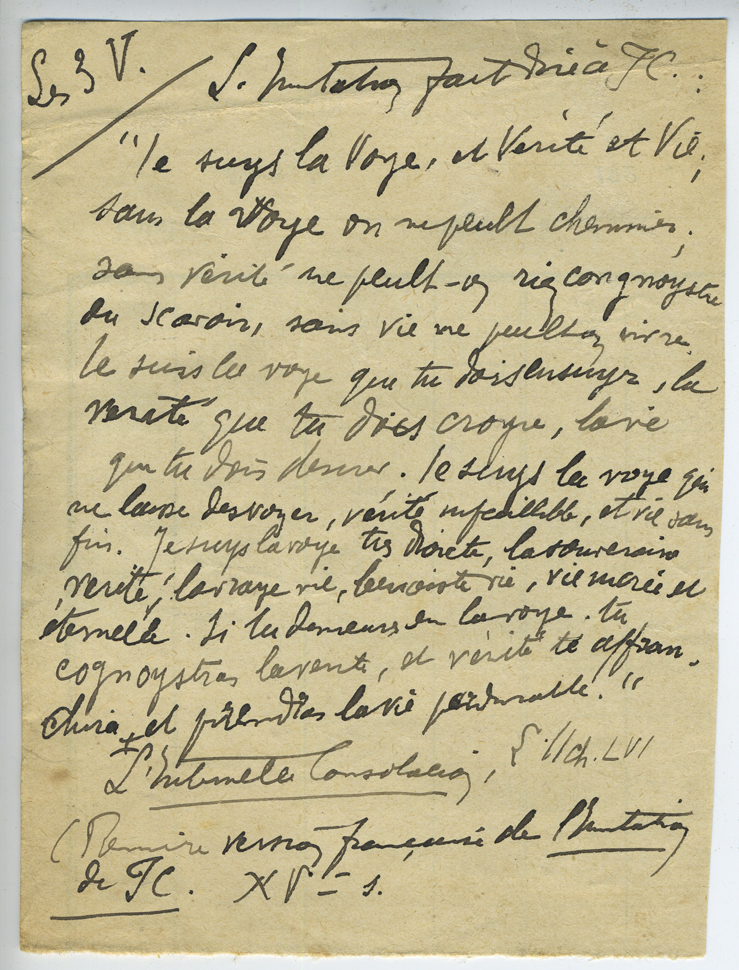 Les 3 V.
L'Imitation fait dire à JC. :
"Je suys la Voye, et Vérité et Vie;
sans la Voye on ne peult cheminer,
sans vérité ne peult-on rien congnoystre
ou scavoir, sans vie ne peult on vivre.
Je suis la voye que tu dois ensuyr, la
vérité que tu dois croyre, la vie
que tu dois desirer. Je suys la voye qui
ne laisse desvoyer, vérité infaillible, et vie sans
fin. Je suys la voye très droicte, la souveraine
vérité, la vraye vie, benoiste vie, vie incréée et
éternelle. Si tu demeures en la voye, tu
cognoystras la vérité, et vérité te affran-
chira, et prendras la vie perdurable."
L'Internelle Consolacion, L. II ch. LVI
(Première version française de l'Imitation
de JC. XVe s.